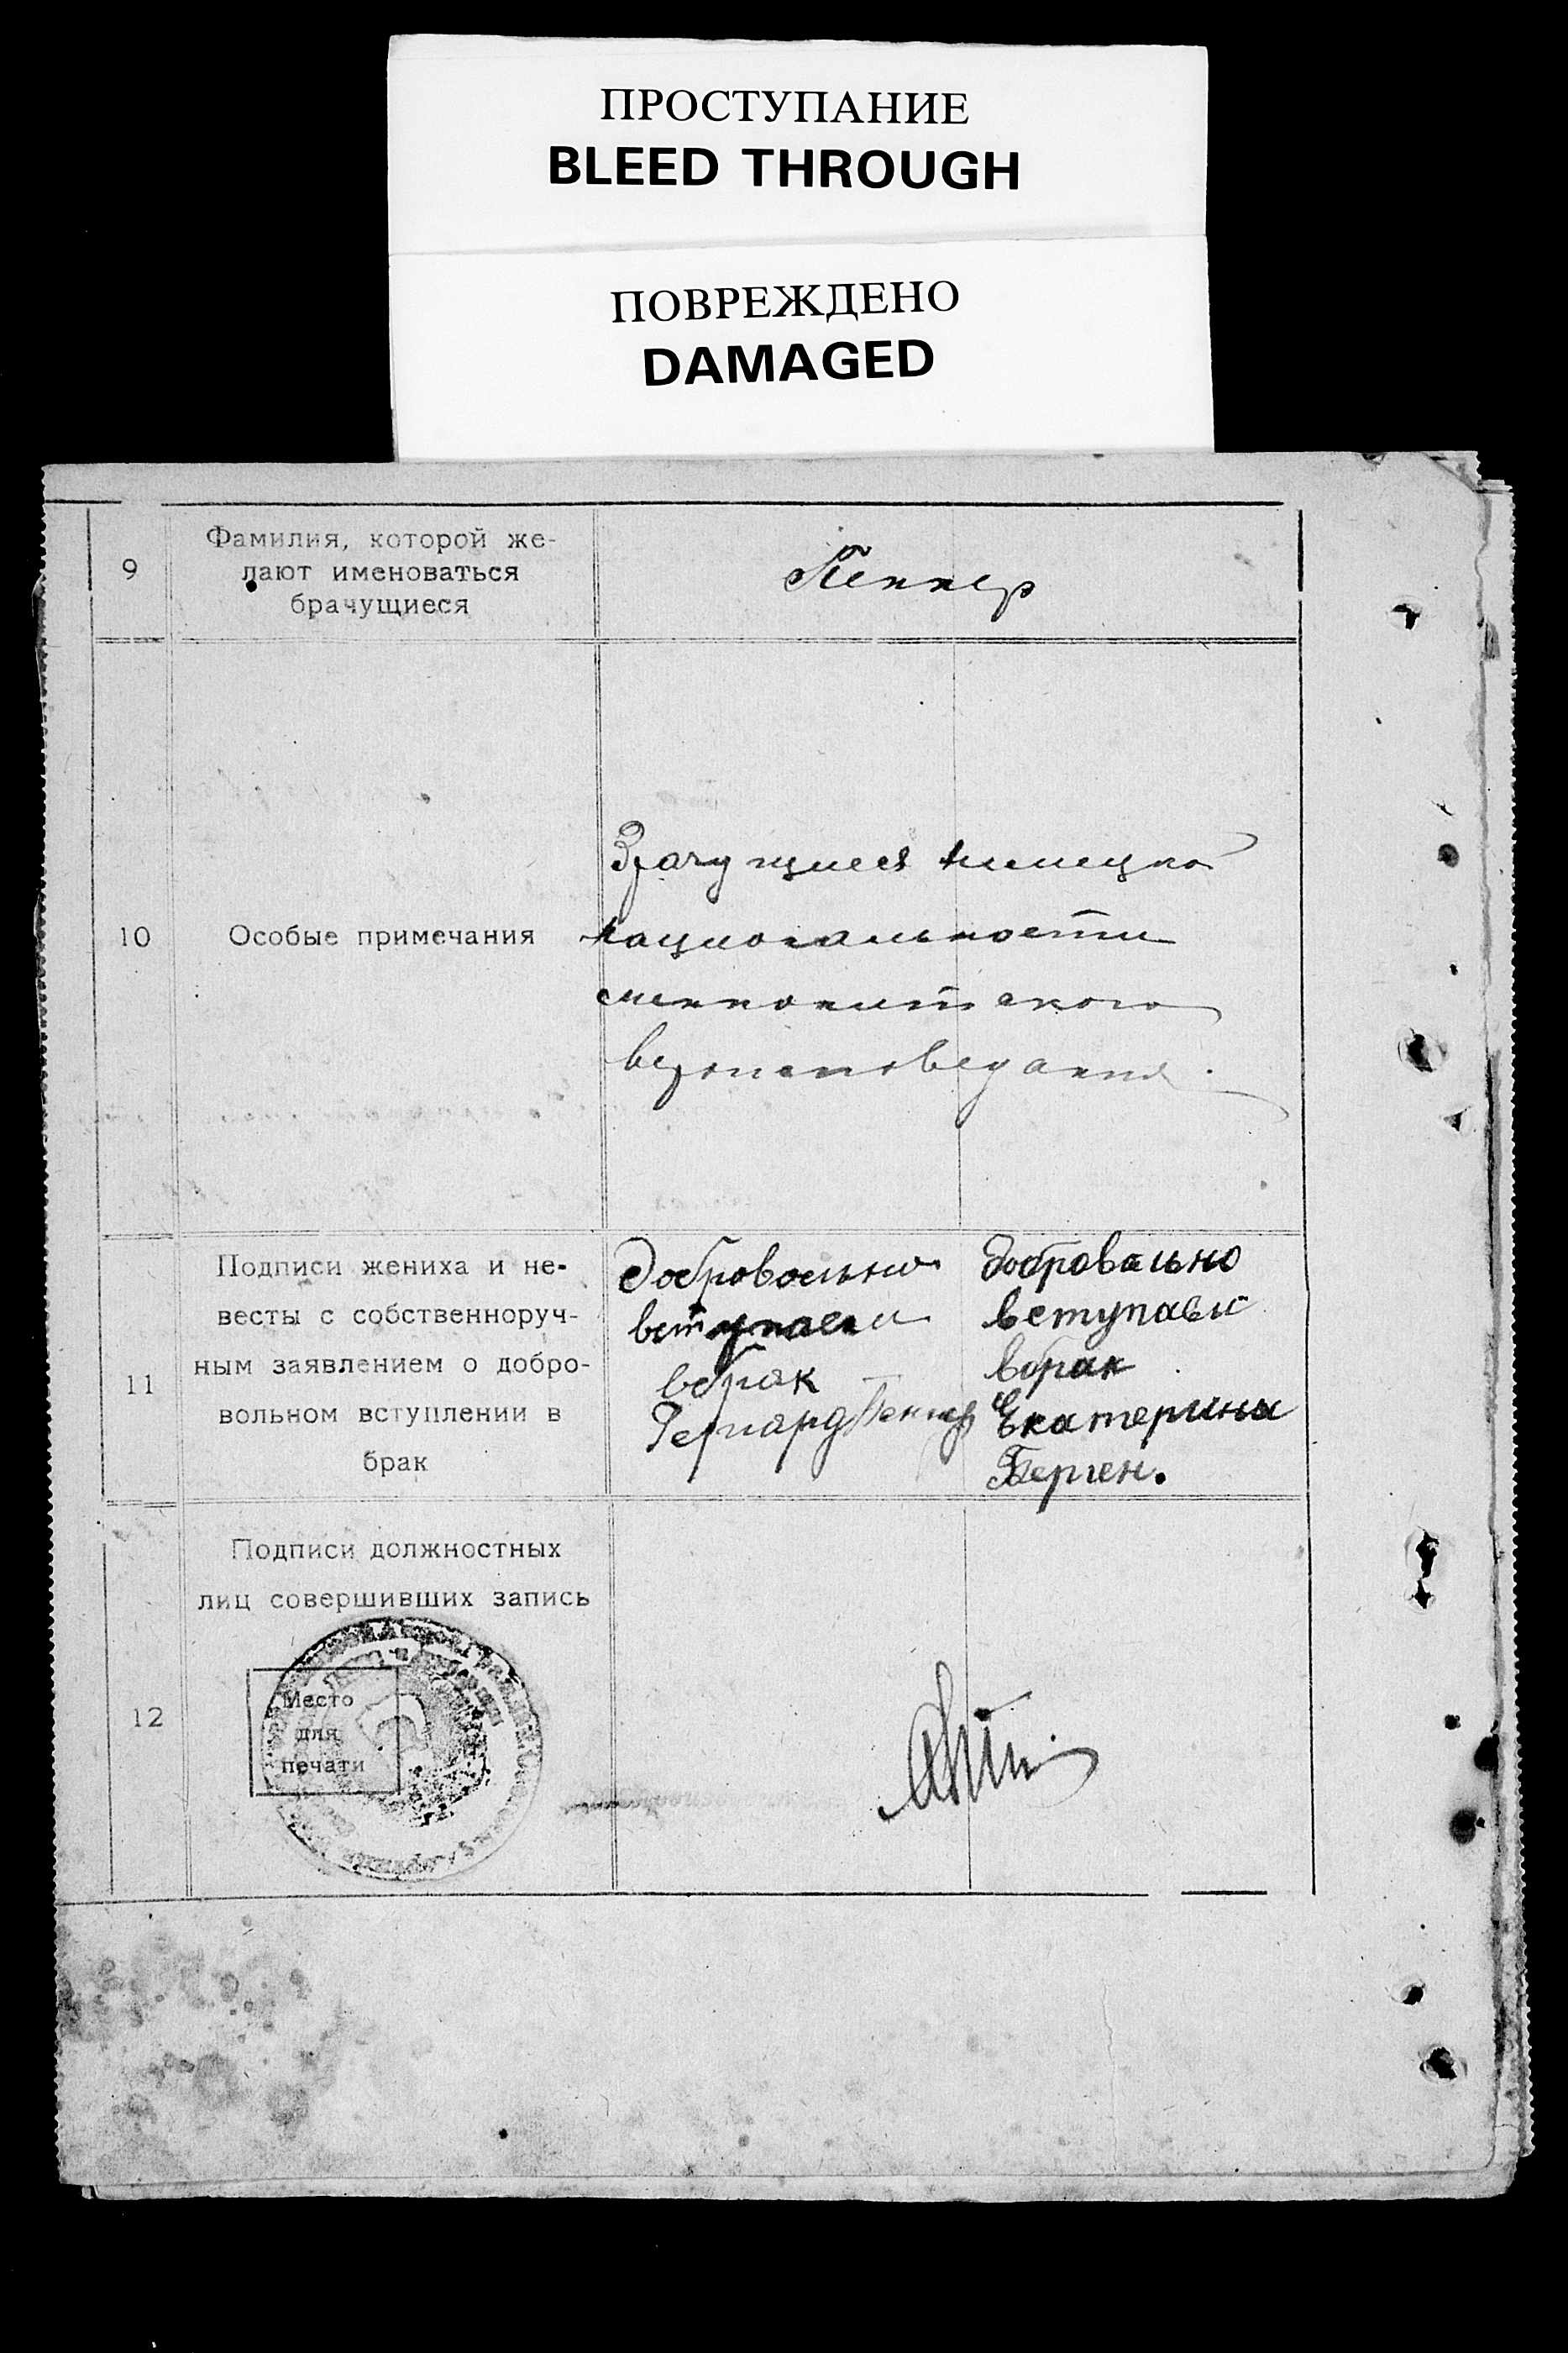 ПРОСТУПАНИЕ
BLEED THROUGH
ПОВРЕЖДЕНО
DAMAGED
9
Фамилия, которой же-
лают именоваться
брачущиеся
Пеннер
10
Особые примечания
Брачущиеся немецкой
национальности
меннонитского
вероисповедания.
11
Подписи жениха и не-
весты с собственноруч-
ным заявлением о добро-
вольном вступлении в
брак
Добровольно
вступаем
вбрак
Гергард Пеннер
Добровально
вступаем
вбрак
Екатерина
Берген.
12
Подписи должностных
лиц совершивших запись
Место
для
печати